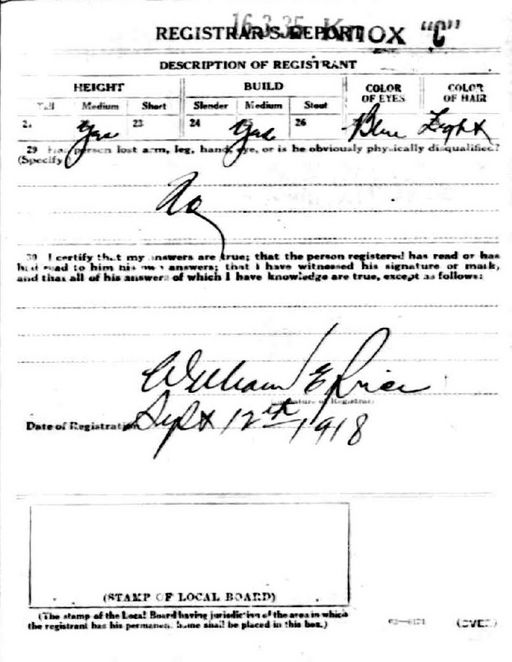 16.3.35 KNOX "C"
REGISTRAR'S REPORT
DESCRIPTION OF REGISTRANT
HEIGHT BUILD COLOR OF EYES COLOR OF HAIR
Tall Medium Short Slender Medium Stout
21 Yes 23 24 Yes 26 Blue Light
29 Has person lost arm, leg, hand, eye, or is he obviously physically disqualified?
(Specify)
No
30 I certify that my answers are true; that the person registered has read or has
had read to him his own answers; that I have witnessed his signature or mark,
and that all of his answers of which I have knowledge are true, except as follows:
William E Price
(Signature of Registrar)
Date of Registration Sept 12th 1918
(STAMP OF LOCAL BOARD)
(The stamp of the Local Board having jurisdiction of the area in which
the registrant has his permanent home shall be placed in this box.)
(OVER)